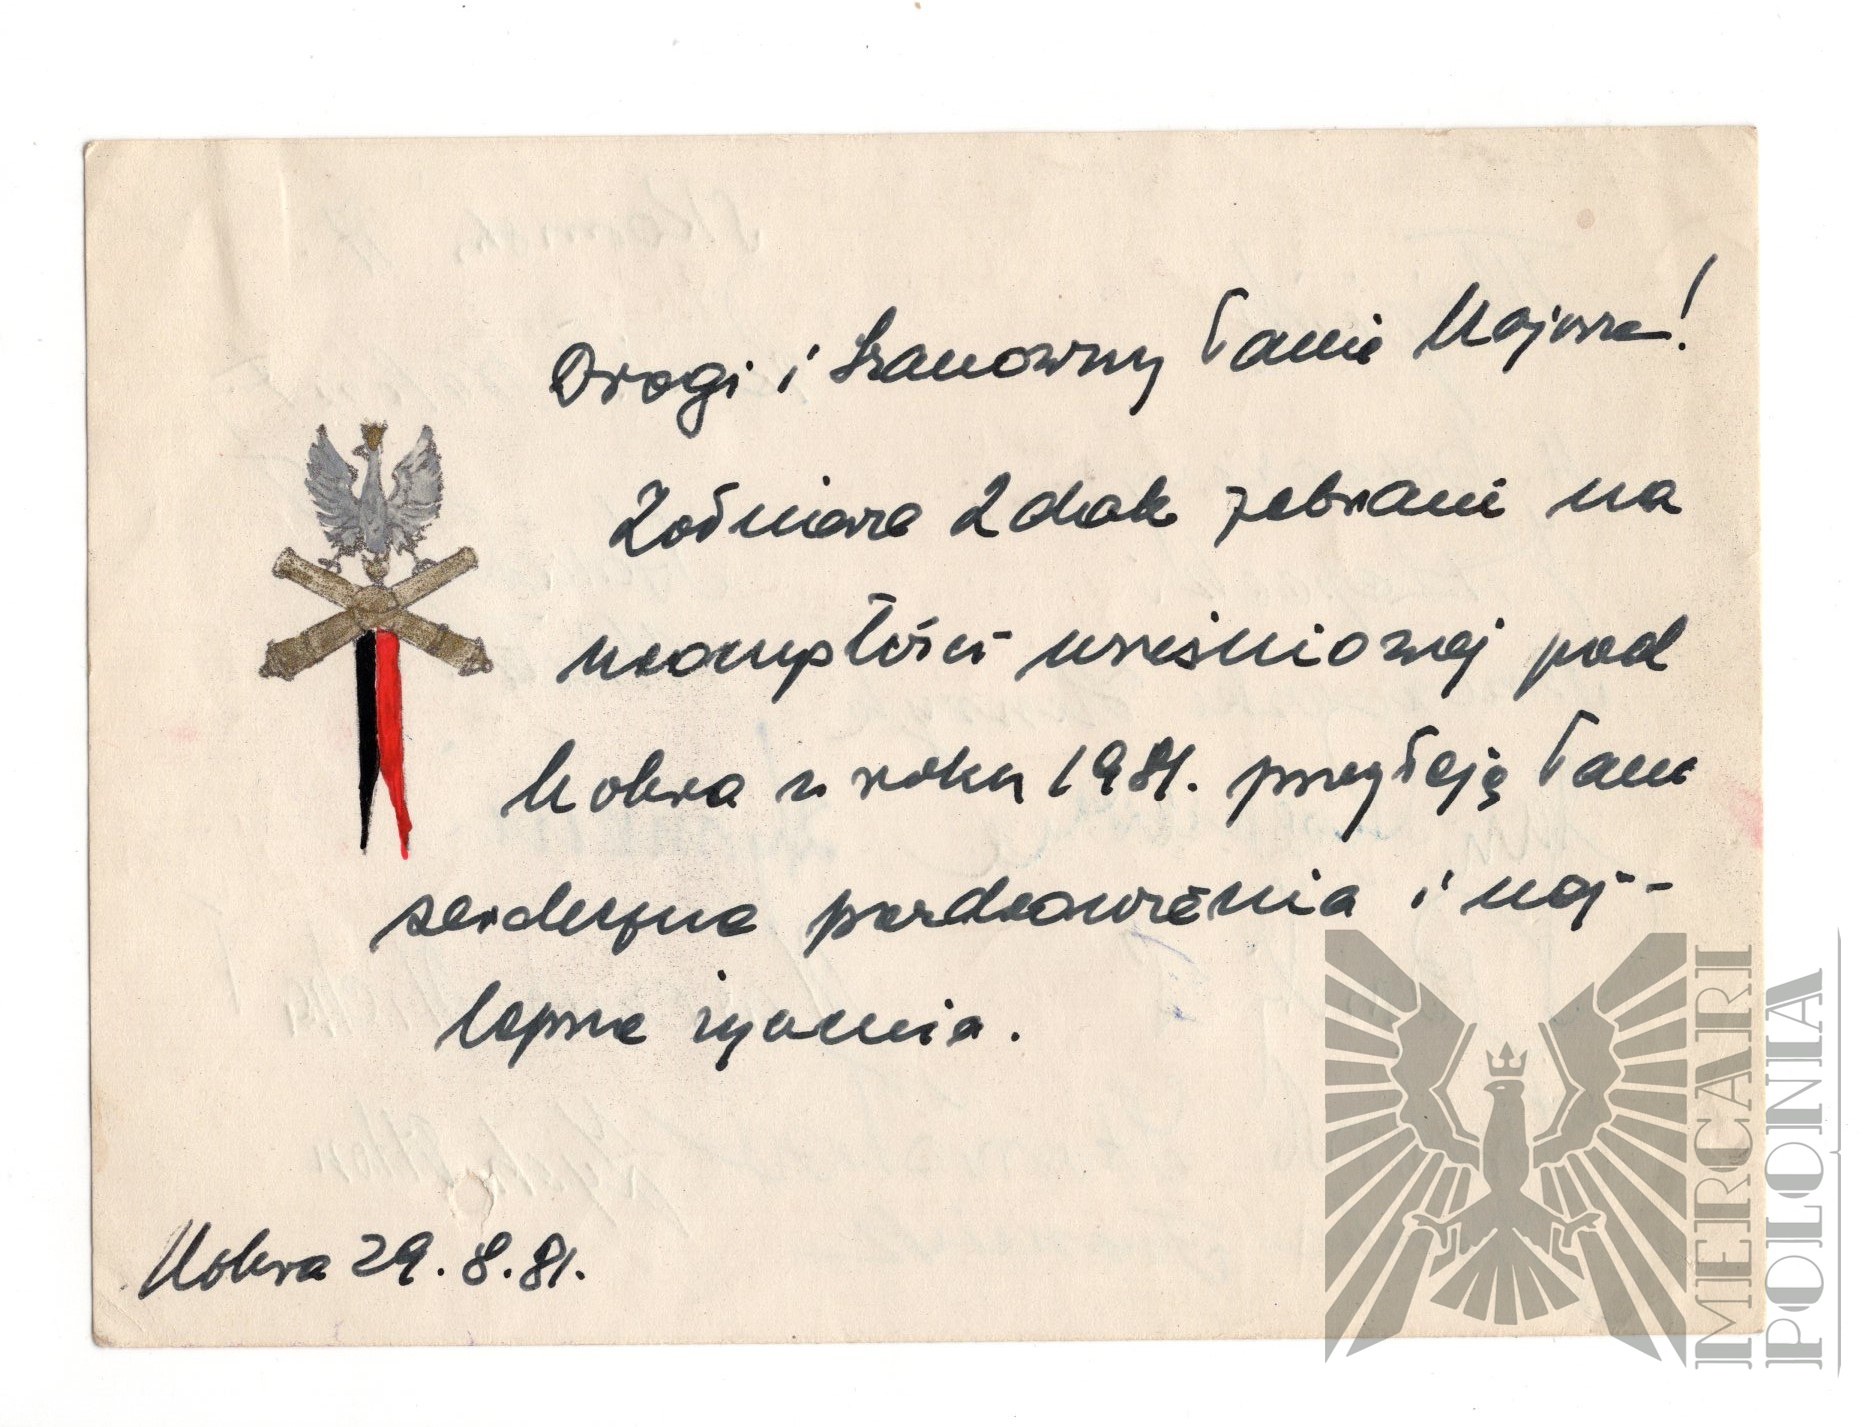 Drogi i Szanowny Panie Majorze!
Żołnierze 2 dak zebrani na
uroczystości wrześniowej pod
Mokrą w roku 1981. przyłają Panu
serdeczne pozdrowienia i naj-
lepsze życzenia.
Mokra 29.8.81.
MERCARI
POLONIA